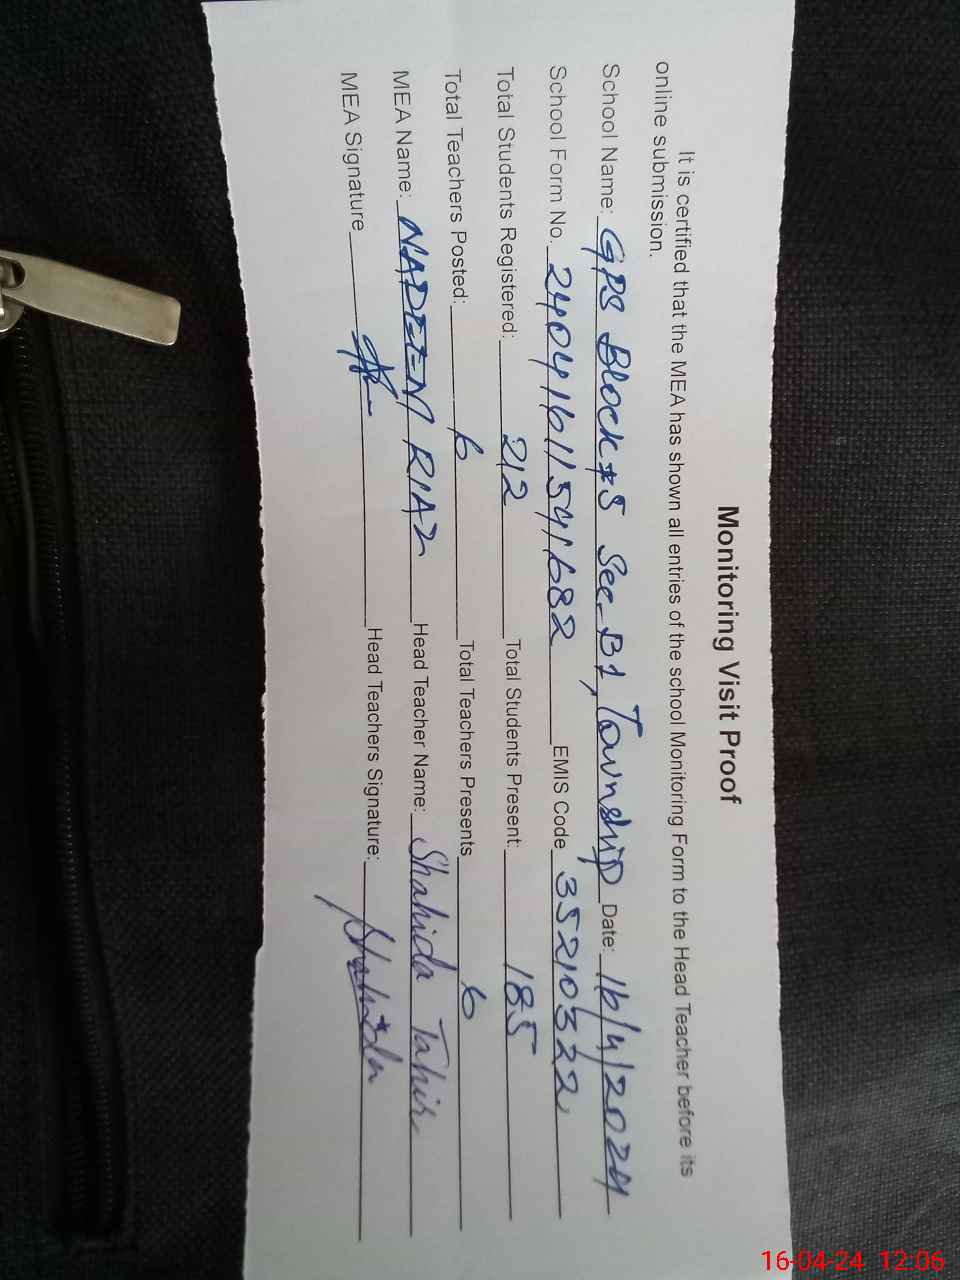 Monitoring Visit Proof
It is certified that the MEA has shown all entries of the school Monitoring Form to the Head Teacher before its
online submission.
School Name: GPS Block #5 Sec-B1, Township Date: 16/4/2024
School Form No. 24041611541682 EMIS Code 35210322
Total Students Registered: 212 Total Students Present: 185
Total Teachers Posted: 6 Total Teachers Presents 6
MEA Name: NADEEM RIAZ Head Teacher Name: Shahida Tahir
MEA Signature Head Teachers Signature: Shahida
16-04-24 12:06